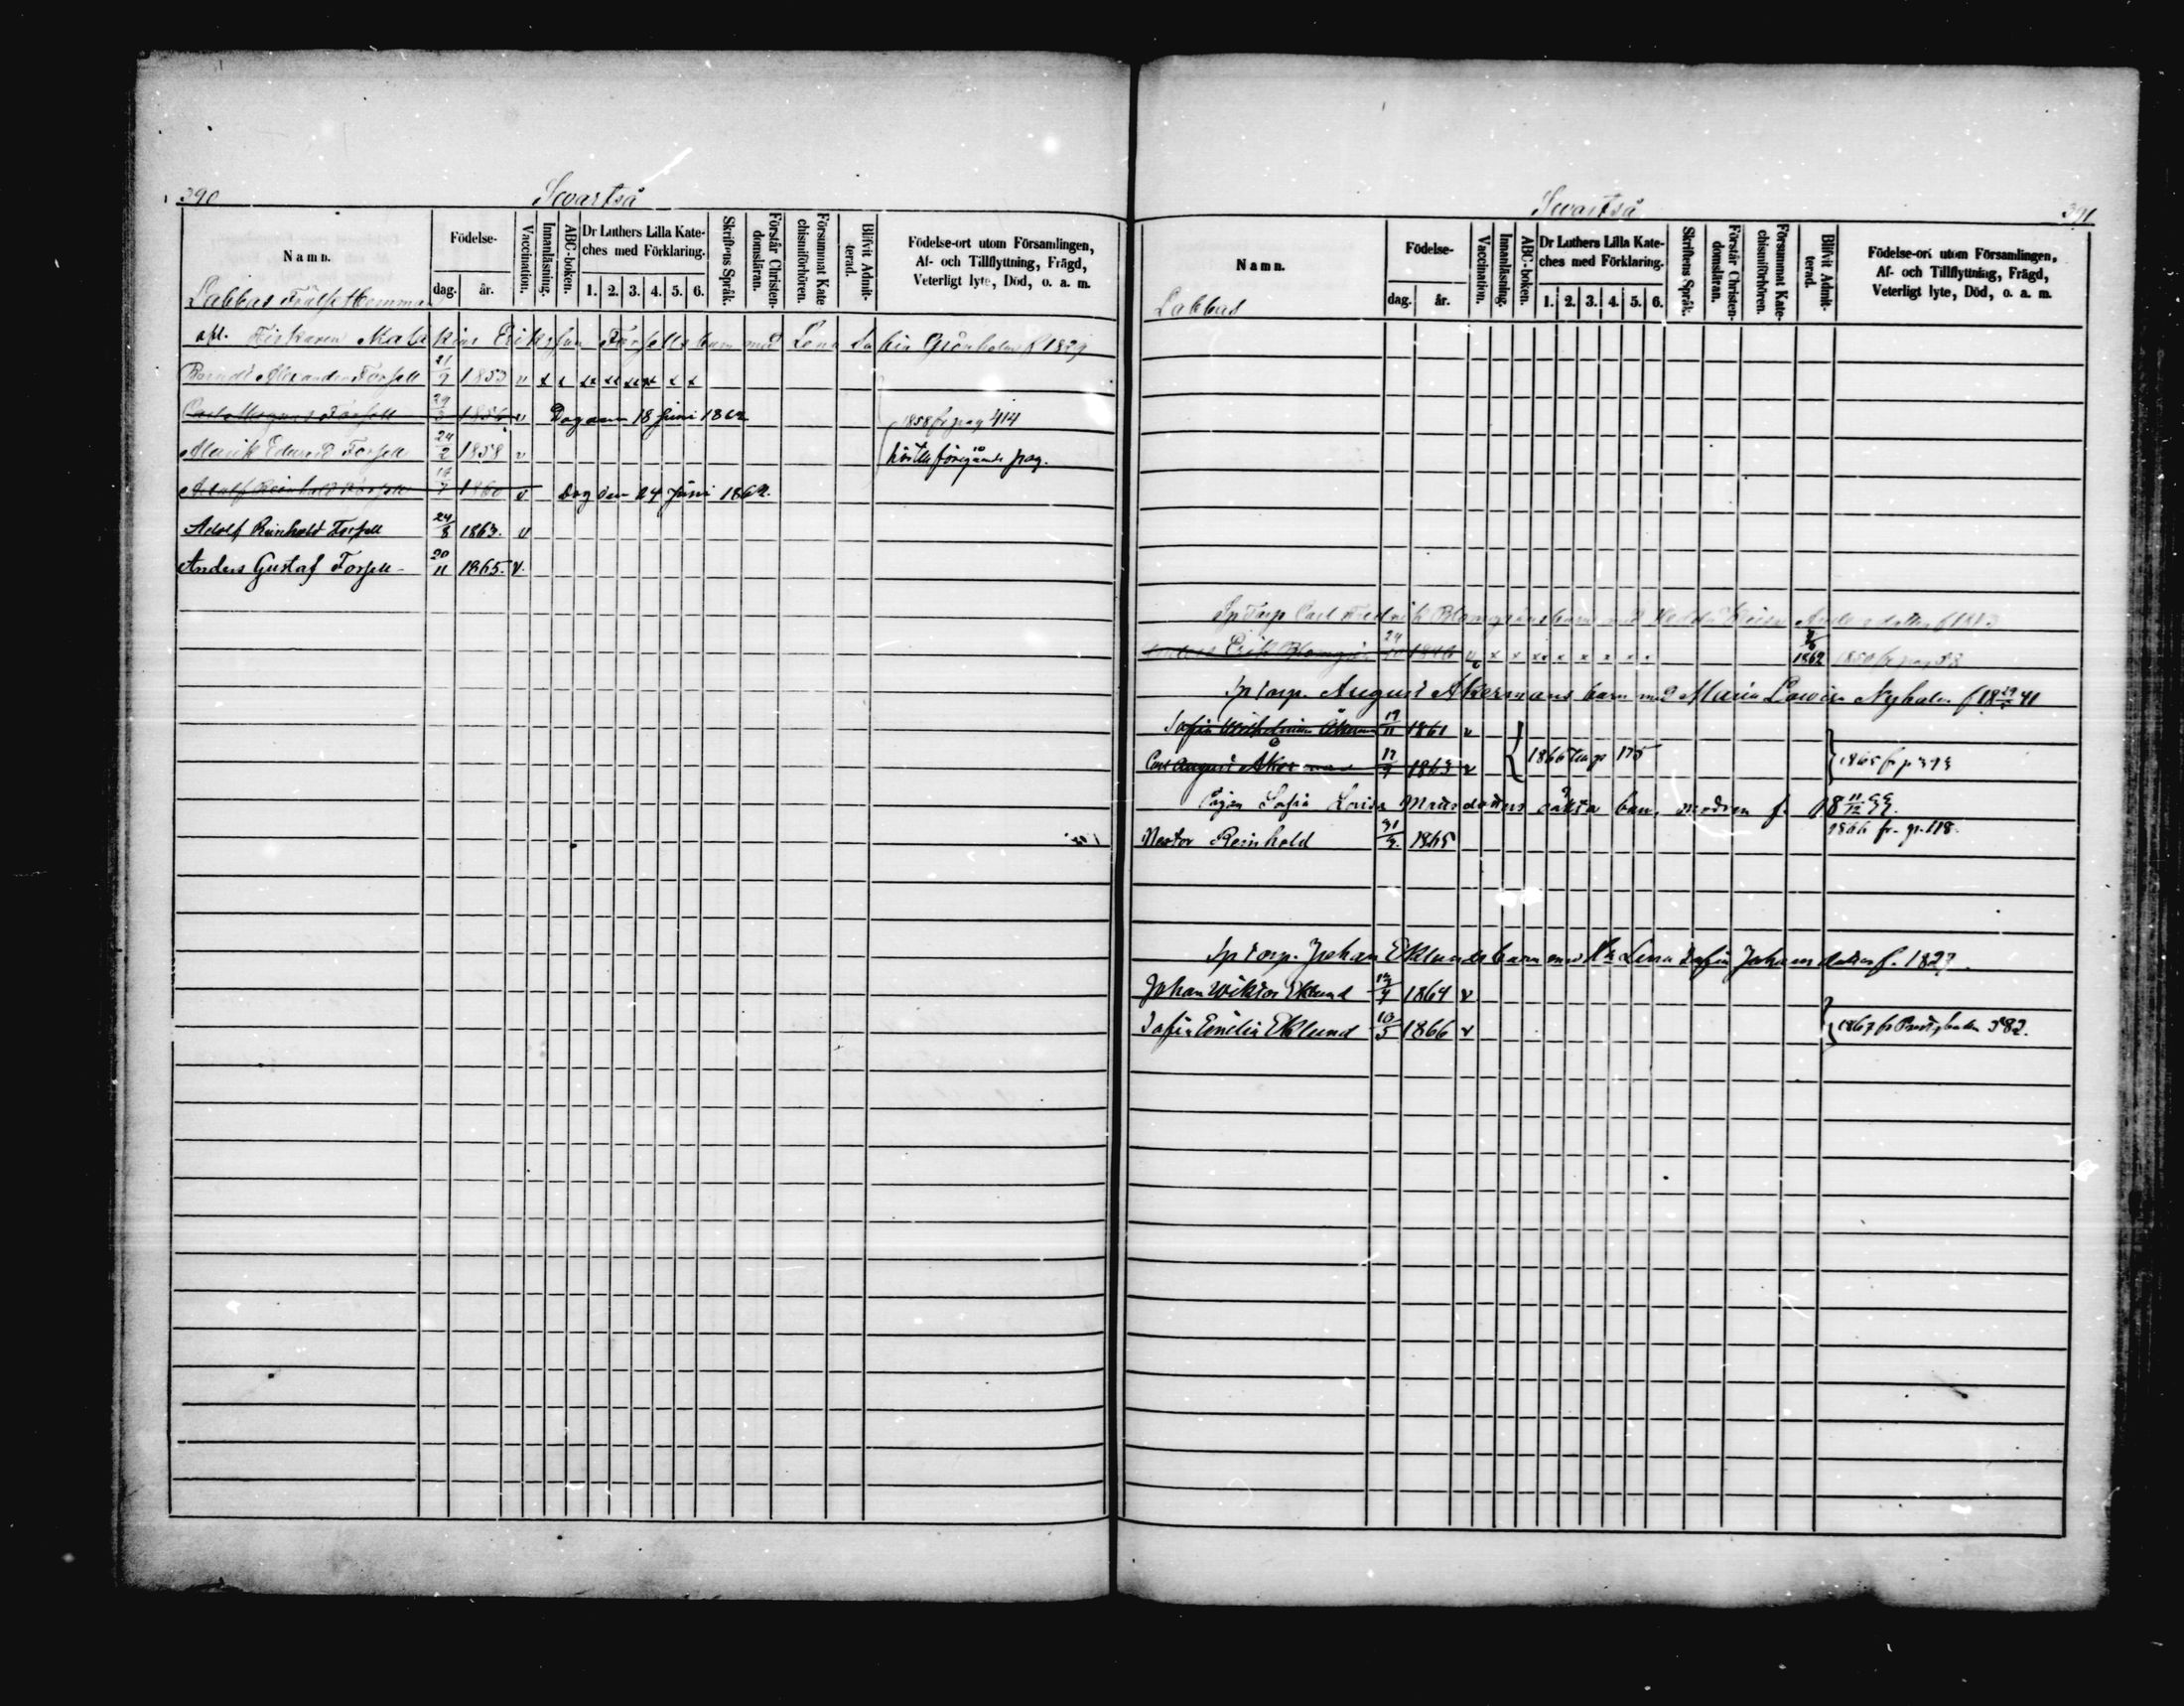 390
Svartså
Namn.
Födelse-
dag.
år.
Vaccination.
Innanläsning.
ABC-boken.
Dr Luthers Lilla Kate-
ches med Förklaring.
1. 2. 3. 4. 5. 6.
Skriftens Språk.
Förstår Christen-
domsläran.
Försummat Kate-
chismiförhören.
Blifvit Admit-
terad.
Födelse-ort utom Församlingen,
Af- och Tillflyttning, Frägd,
Veterligt lyte, Död, o. a. m.
Labbas Frälsehemman
Fiskaren Erikson Forsells barn med Lena f 1829
Berndt Alexander Forsell 21/9 1853 v x x xx xx xx x x x
Carl Magnus Forsell 29 1856 v Dog den 18 Juni 1862 1858 fr pag 414
Alarik Eduard Forsell 24/2 1858 v föregående pag.
Adolf Reinhold Forsell 1860 v Dog den 24 Juni 1862.
Adolf Reinhold Forsell 24/8 1863. v
Anders Gustaf Forsell 20/11 1865. v.
Svartså
391
Namn.
Födelse-
dag.
år.
Vaccination.
Innanläsning.
ABC-boken.
Dr Luthers Lilla Kate-
ches med Förklaring.
1. 2. 3. 4. 5. 6.
Skriftens Språk.
Förstår Christen-
domsläran.
Försummat Kate-
chismiförhören.
Blifvit Admit-
terad.
Födelse-ort utom Församlingen,
Af- och Tillflyttning, Frägd,
Veterligt lyte, Död, o. a. m.
Labbas
Sp Torp Carl Fredrik Blomgrens barn med Hedda
Erik Blomgren 24 1846 v x x xx x x x x x 1862 1850 fr pag
Sp torp. August Åkermans barn med Maria Lovisa Nyholm f 18 29 41
Sofia Wilhelmina Åkerman 19/11 1861 v
Carl August Åkerman 17/9 1863 v 1866 till pag 175 1865 fr p 393
Pigan Sofia Lovisa Matsdotters oäkta barn, modren f. 18 11/12 44.
Nestor Reinhold 31/3. 1865 1866 fr. p. 118.
Sp torp. Johan Eklunds barn med Lena Sofia Johansdotter f. 1827.
Johan Wiktor Eklund 12/4 1864 v
Sofia Emilia Eklund 10/5 1866 v 1867 fr 382.